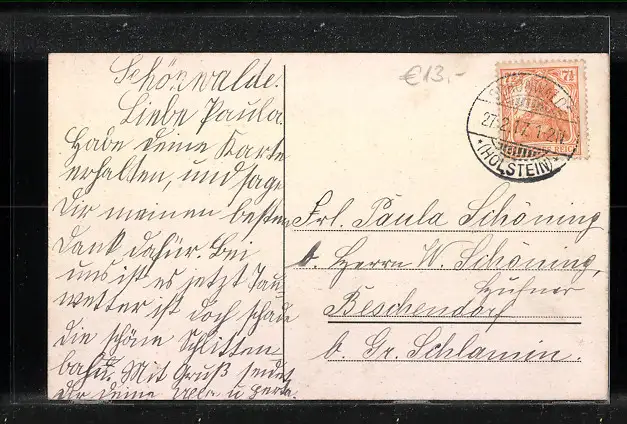 Schönwalde.
Liebe Paula.
Habe deine Karte
erhalten, und sage
dir meinen besten
Dank dafür. Bei
uns ist es jetzt Tau-
wetter ist doch schade
die schöne Schlitten
bahn. Mit Gruß sendet
dir deine u
€13,-
7½
27.2.17. 1-2N
*(HOLSTEIN)*
REICH
Frl. Paula Schöning
b. Herrn W. Schöning,
Hufner
Beschendorf
b. Gr. Schlamin.